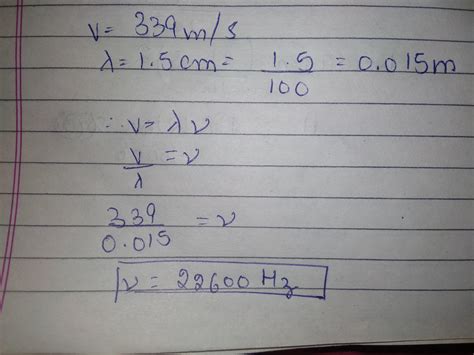 v = 339 m/s
λ = 1.5 cm = 1.5/100 = 0.015m
∴ v = λ ν
v/λ = ν
339/0.015 = ν
ν = 22600 Hz